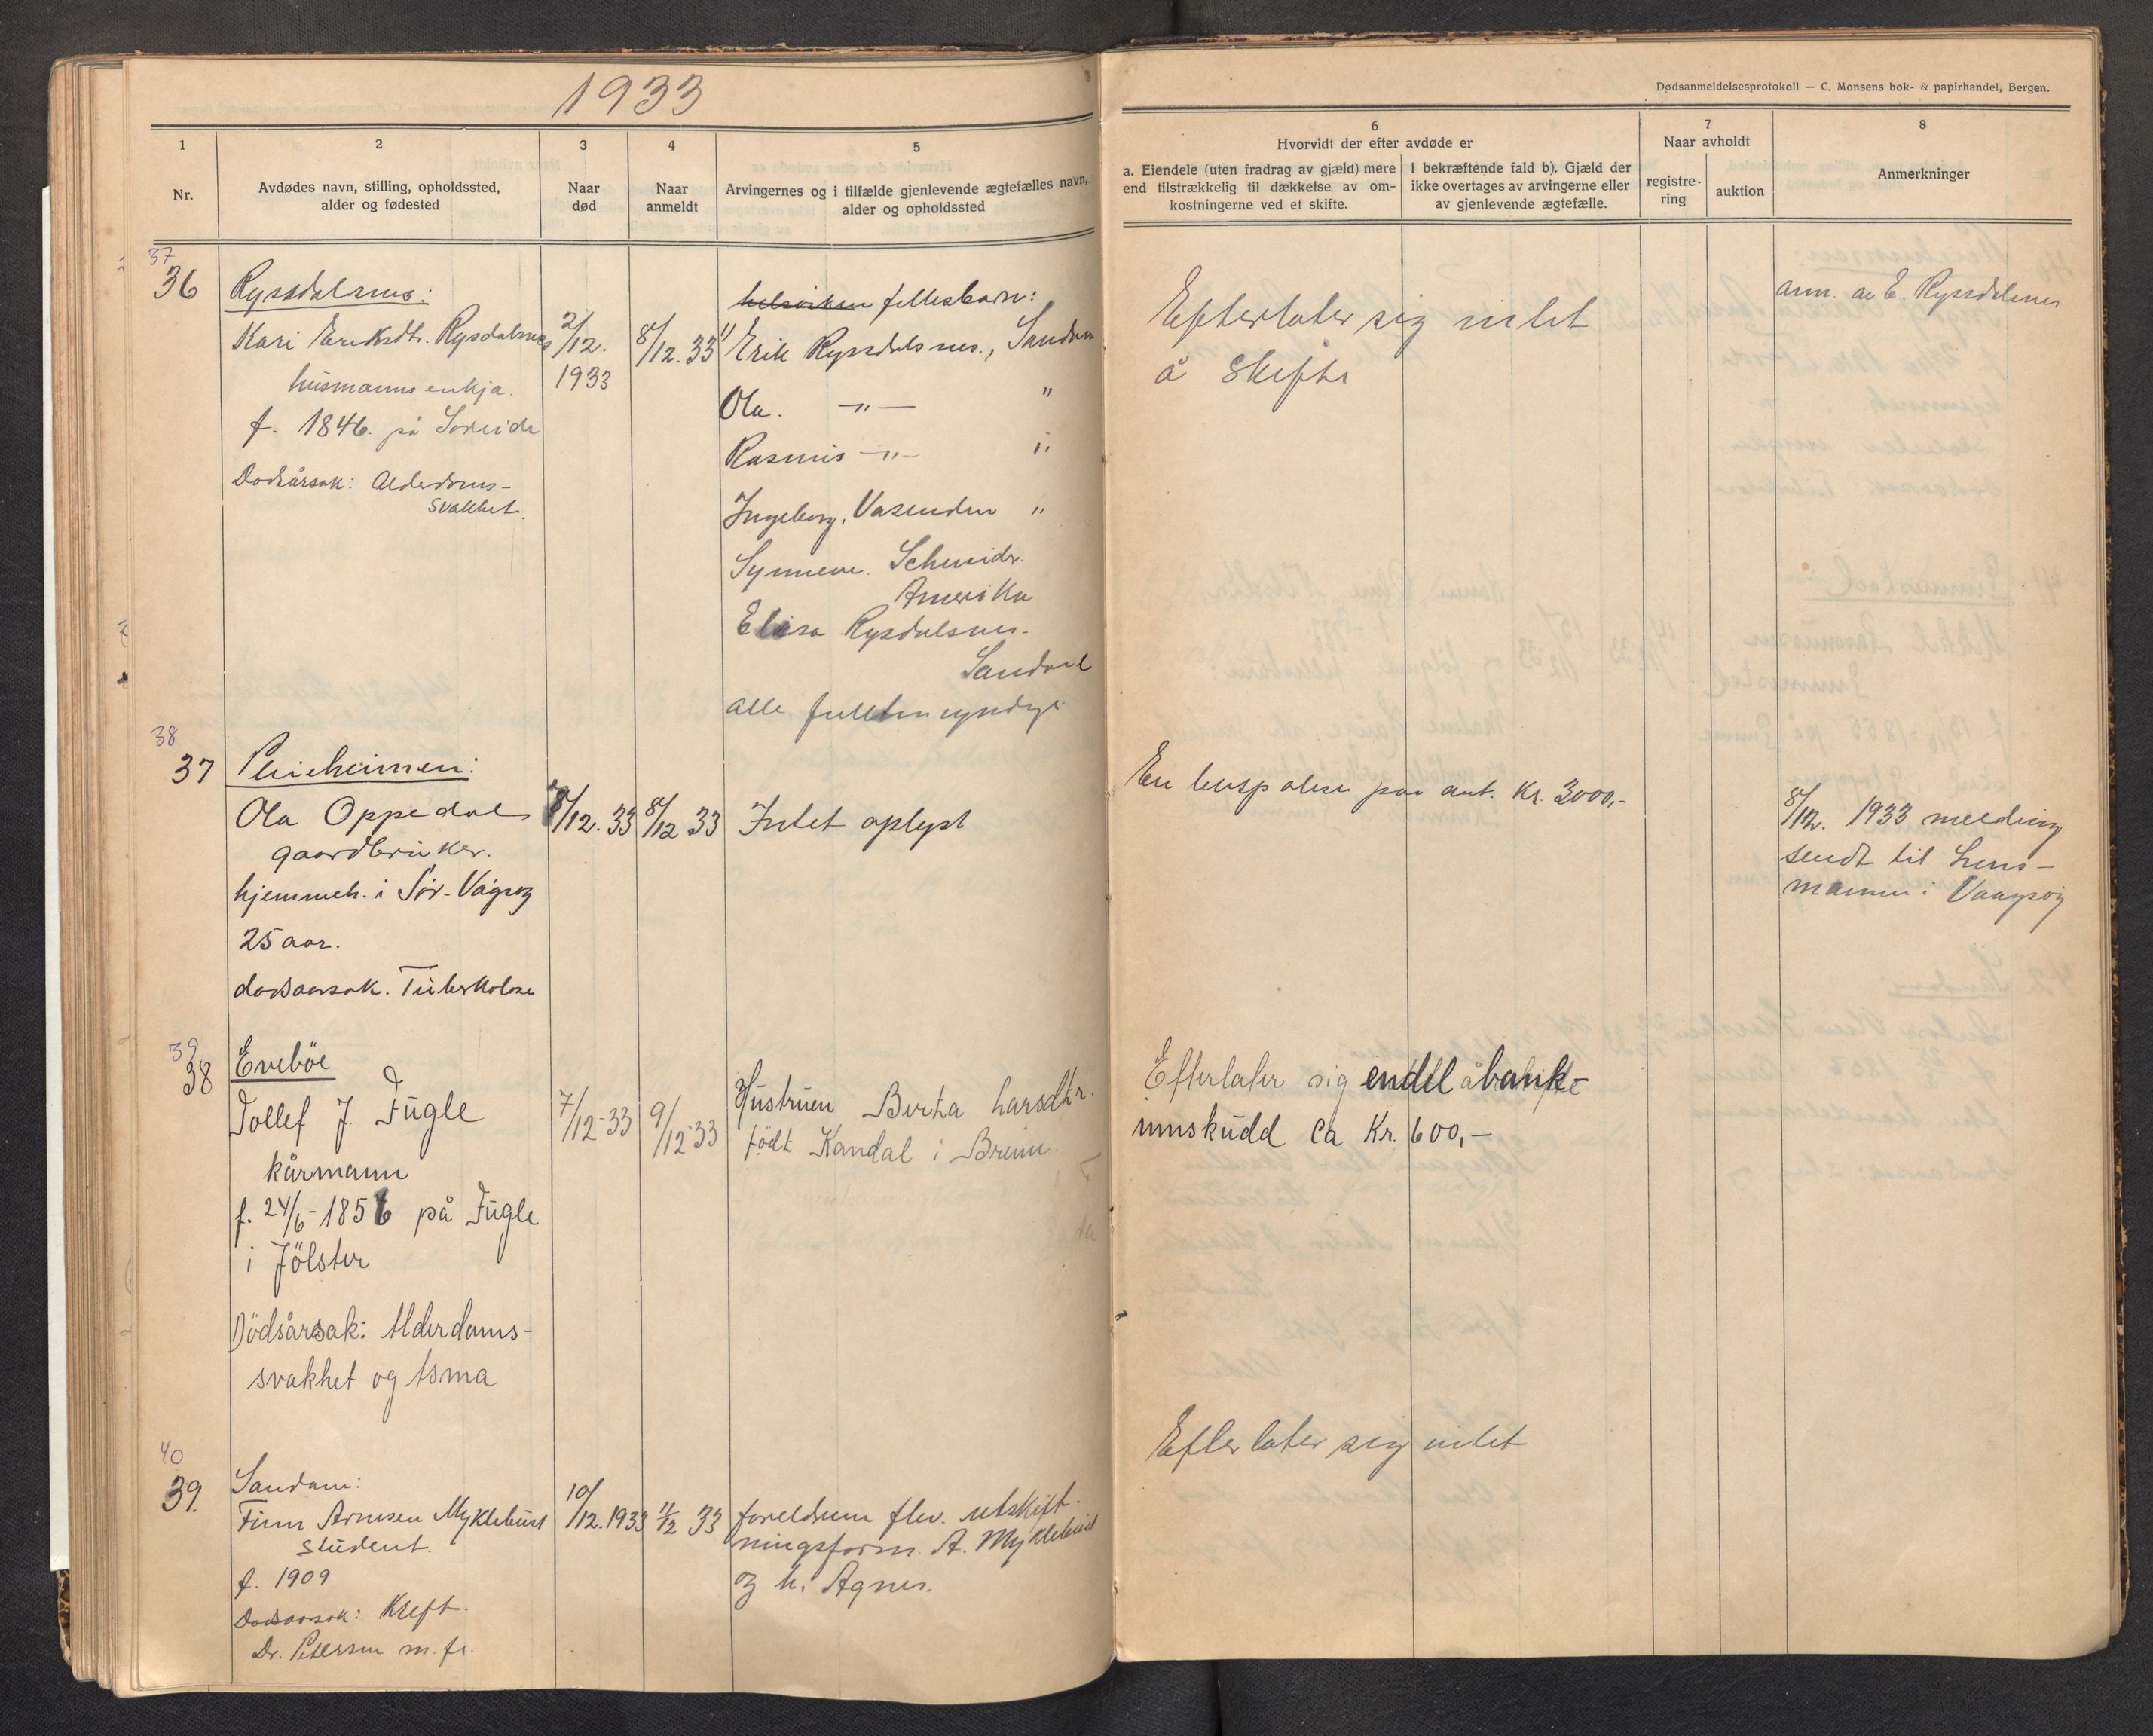 1933
Dødsanmeldelsesprotokoll — C. Monsens bok- & papirhandel, Bergen.
1
Nr.
2
Avdødes navn, stilling, opholdssted,
alder og fødested
3
Naar
død
4
Naar
anmeldt
5
Arvingernes og i tilfælde gjenlevende ægtefælles navn,
alder og opholdssted
6
Hvorvidt der efter avdøde er
a. Eiendele (uten fradrag av gjæld) mere
end tilstrækkelig til dækkelse av om-
kostningerne ved et skifte.
I bekræftende fald b). Gjæld der
ikke overtages av arvingerne eller
av gjenlevende ægtefælle.
7
Naar avholdt
registre-
ring
auktion
8
Anmerkninger
37
36
Ryssdalsnes:
Kari Eriksdtr. Rysdalsnes
husmanns enkja.
f. 1846. på Søreide
Dødsårsak: Alderdoms-
svakhet.
2/12.
1933
8/12. 33
fellesbarn:
1) Erik Ryssdalsnes, Sandane
Ola. —"— "
Rasmus —"— "
Ingeborg, Vasenden "
Synneve. Schmidr.
Amerika
Elisa Rysdalsnes.
Sandane
alle fullmyndige
Efterlater sig intet
å skifte
anm. av E. Ryssdalsnes
38
37
Pleieheimen:
Ola Oppedal
gaardbruker.
hjemmeh. i Sør-Vågsøy
25 aar.
dødsaarsak. Tuberkolose
8/12. 33
8/12 33
Intet oplyst
En livspolise paa ant. Kr. 3000,-
8/12. 1933 melding
sendt til Lens-
mannen i Vaagsøy
39
38
Evebøe
Tollef J. Fugle
kårmann
f. 24/6-1856 på Fugle
i Jölster
Dödsårsak: Alderdoms-
svakhet og Asma
7/12-33
9/12-33
Hustruen Berta Larsdtr.
født Kandal i Breim.
Efterlater sig endel å bank-
innskudd ca Kr. 600,-
40
39.
Sandane:
Finn Arnesen Myklebust
student.
f. 1909
Dødsaarsak: Kreft.
Dr. Petersen m. fl.
10/12. 1933
11/12 33
foreldrene flev. utskift-
ningsform. A. Myklebust
og h. Agnes.
Efterlater sig intet